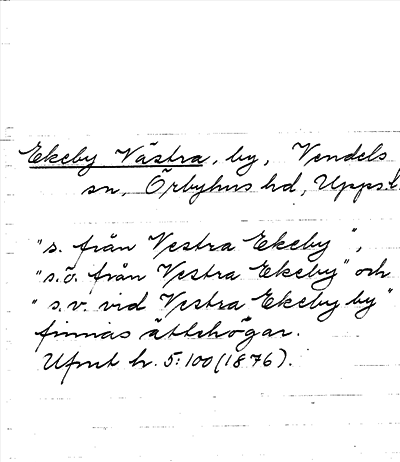 Ekeby Västra, by, Vendels
sn, Örbyhus hd, Upps l.
"s. från Vestra Ekeby",
"s.ö. från Vestra Ekeby" och
"s.v. vid Vestra Ekeby by"
finnas ättehögar.
Ufmt h. 5:100 (1876).